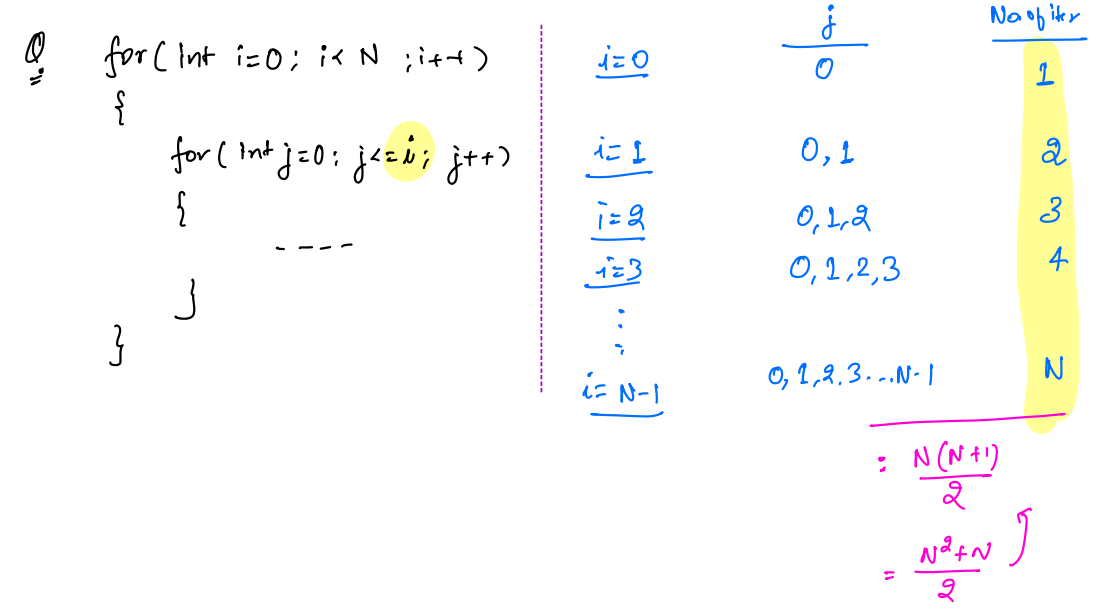 Q for( int i=0; i< N ; i++)
{
for( int j=0; j<=i; j++)
{
----
}
}
j No of iter
i=0 0 1
i=1 0,1 2
i=2 0,1,2 3
i=3 0,1,2,3 4
⋮
i= N-1 0,1,2,3...N-1 N
= N(N+1)/2
= N²+N/2